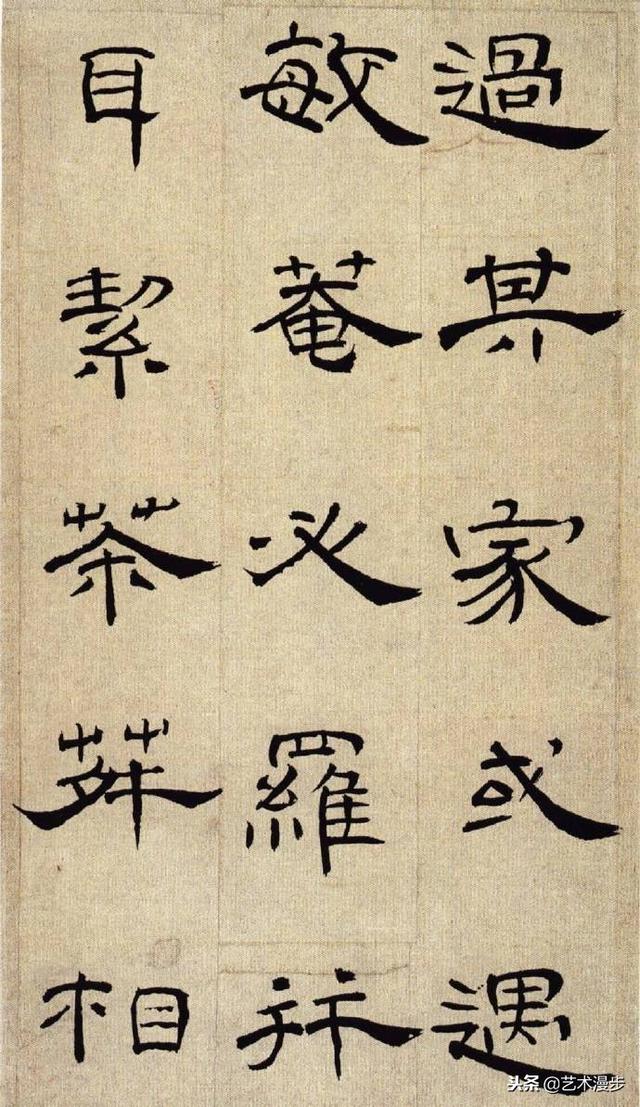 過其家或遇
敏菴必羅
耳絜茶荈相
头条 @艺术漫步